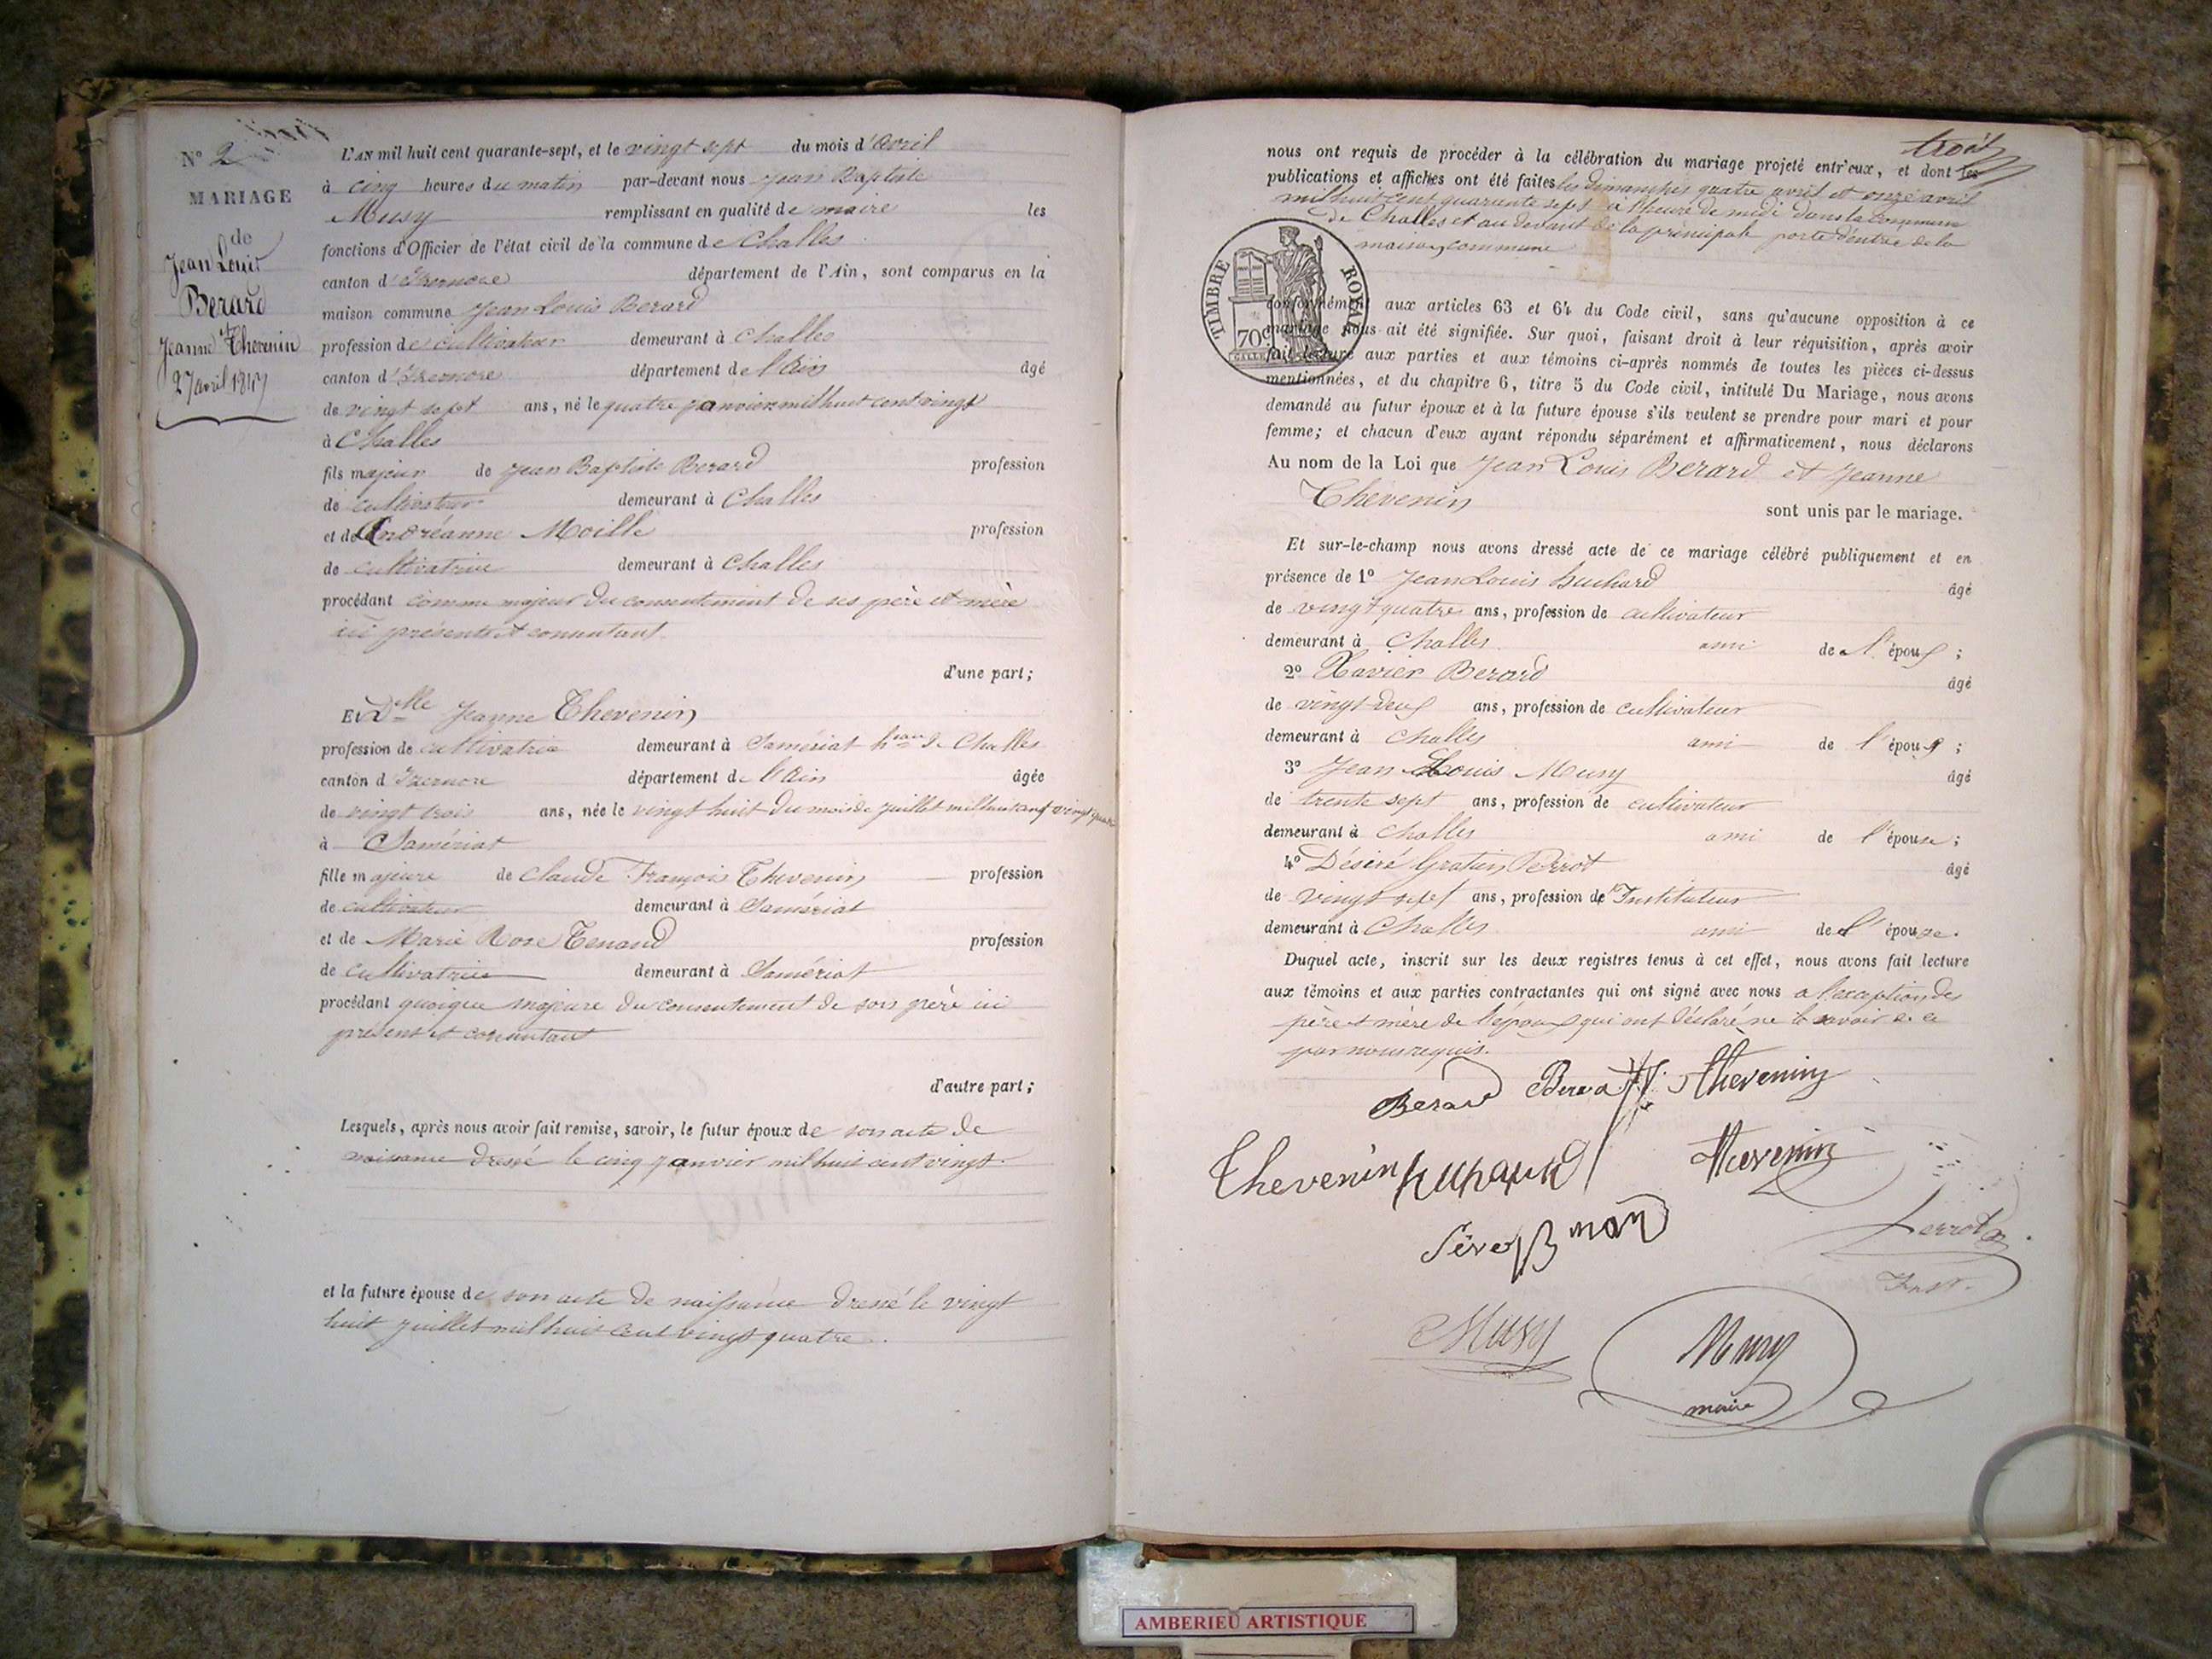 N° 2
MARIAGE
de
Jean Louis
Berard
Jeanne Thevenin
27 avril 1847
L'AN mil huit cent quarante-sept, et le vingt sept du mois d'avril
à cinq heures du matin par-devant nous Jean Baptiste
Musy remplissant en qualité de maire les
fonctions d'Officier de l'état civil de la commune de Challes
canton d'Izernore département de l'Ain, sont comparus en la
maison commune Jean Louis Berard
profession de cultivateur demeurant à Challes
canton d'Izernore département de l'Ain âgé
de vingt sept ans, né le quatre janvier mil huit cent vingt
à Challes
fils majeur de Jean Baptiste Berard profession
de cultivateur demeurant à Challes
et de Andréanne Moille profession
de cultivatrice demeurant à Challes
procédant comme majeur du consentement de ses père et mère
ici présents et consentant
d'une part;
Et Dlle Jeanne Thevenin
profession de cultivatrice demeurant à Samériat hau de Challes
canton d'Izernore département de l'Ain âgée
de vingt trois ans, née le vingt huit du mois de juillet mil huit cent vingt quatre
à Samériat
fille majeure de Claude François Thevenin profession
de cultivateur demeurant à Samériat
et de Marie Rose Tenand profession
de cultivatrice demeurant à Samériat
procédant quoique majeure du consentement de son père ici
présent et consentant
d'autre part;
Lesquels, après nous avoir fait remise, savoir, le futur époux de son acte de
naissance dressé le cinq janvier mil huit cent vingt
et la future épouse de son acte de naissance dressé le vingt
huit juillet mil huit cent vingt quatre.
trois
nous ont requis de procéder à la célébration du mariage projeté entr'eux, et dont les
publications et affiches ont été faites les dimanches quatre avril et onze avril
mil huit cent quarante sept à l'heure de midi dans la commune
de Challes et au devant de la principale porte d'entrée de la
maison commune
TIMBRE ROYAL
70c
conformément aux articles 63 et 64 du Code civil, sans qu'aucune opposition à ce
mariage nous ait été signifiée. Sur quoi, faisant droit à leur réquisition, après avoir
fait lecture aux parties et aux témoins ci-après nommés de toutes les pièces ci-dessus
mentionnées, et du chapitre 6, titre 5 du Code civil, intitulé Du Mariage, nous avons
demandé au futur époux et à la future épouse s'ils veulent se prendre pour mari et pour
femme; et chacun d'eux ayant répondu séparément et affirmativement, nous déclarons
Au nom de la Loi que Jean Louis Berard et Jeanne
Thevenin sont unis par le mariage.
Et sur-le-champ nous avons dressé acte de ce mariage célébré publiquement et en
présence de 1° Jean Louis huchard âgé
de vingt quatre ans, profession de cultivateur
demeurant à Challes ami de l'époux;
2° Xavier Berard âgé
de vingt deux ans, profession de cultivateur
demeurant à Challes ami de l'époux;
3° Jean Louis Musy âgé
de trente sept ans, profession de cultivateur
demeurant à Challes ami de l'épouse;
4° Désiré Gratien Perrot âgé
de vingt sept ans, profession de Instituteur
demeurant à Challes ami de l'épouse.
Duquel acte, inscrit sur les deux registres tenus à cet effet, nous avons fait lecture
aux témoins et aux parties contractantes qui ont signé avec nous a l'exception des
père et mère de l'époux qui ont déclaré ne le savoir de ce
par nous requis.
Berard Berard Thevenin
Thevenin huchard Thevenin
Perrot
Inst.
Musy
Musy
maire
AMBERIEU ARTISTIQUE